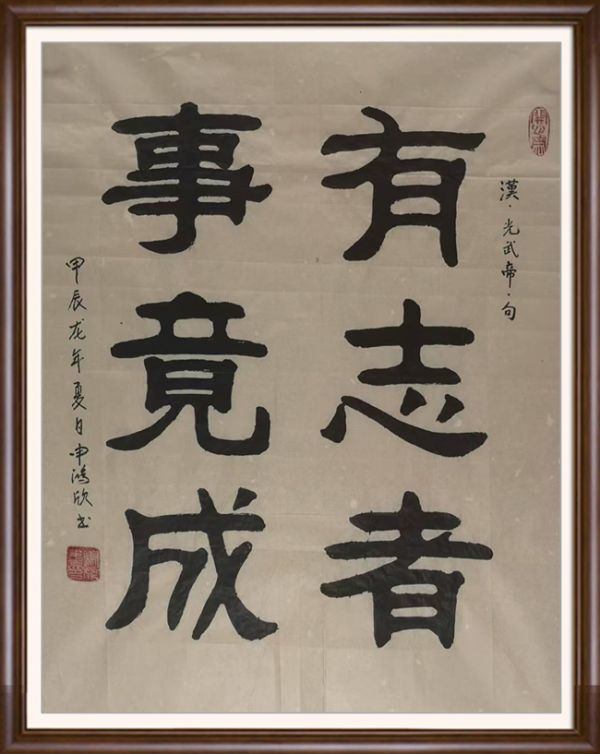 漢·光武帝·句
有志者
事竟成
甲辰龙年夏日申鴻欣书